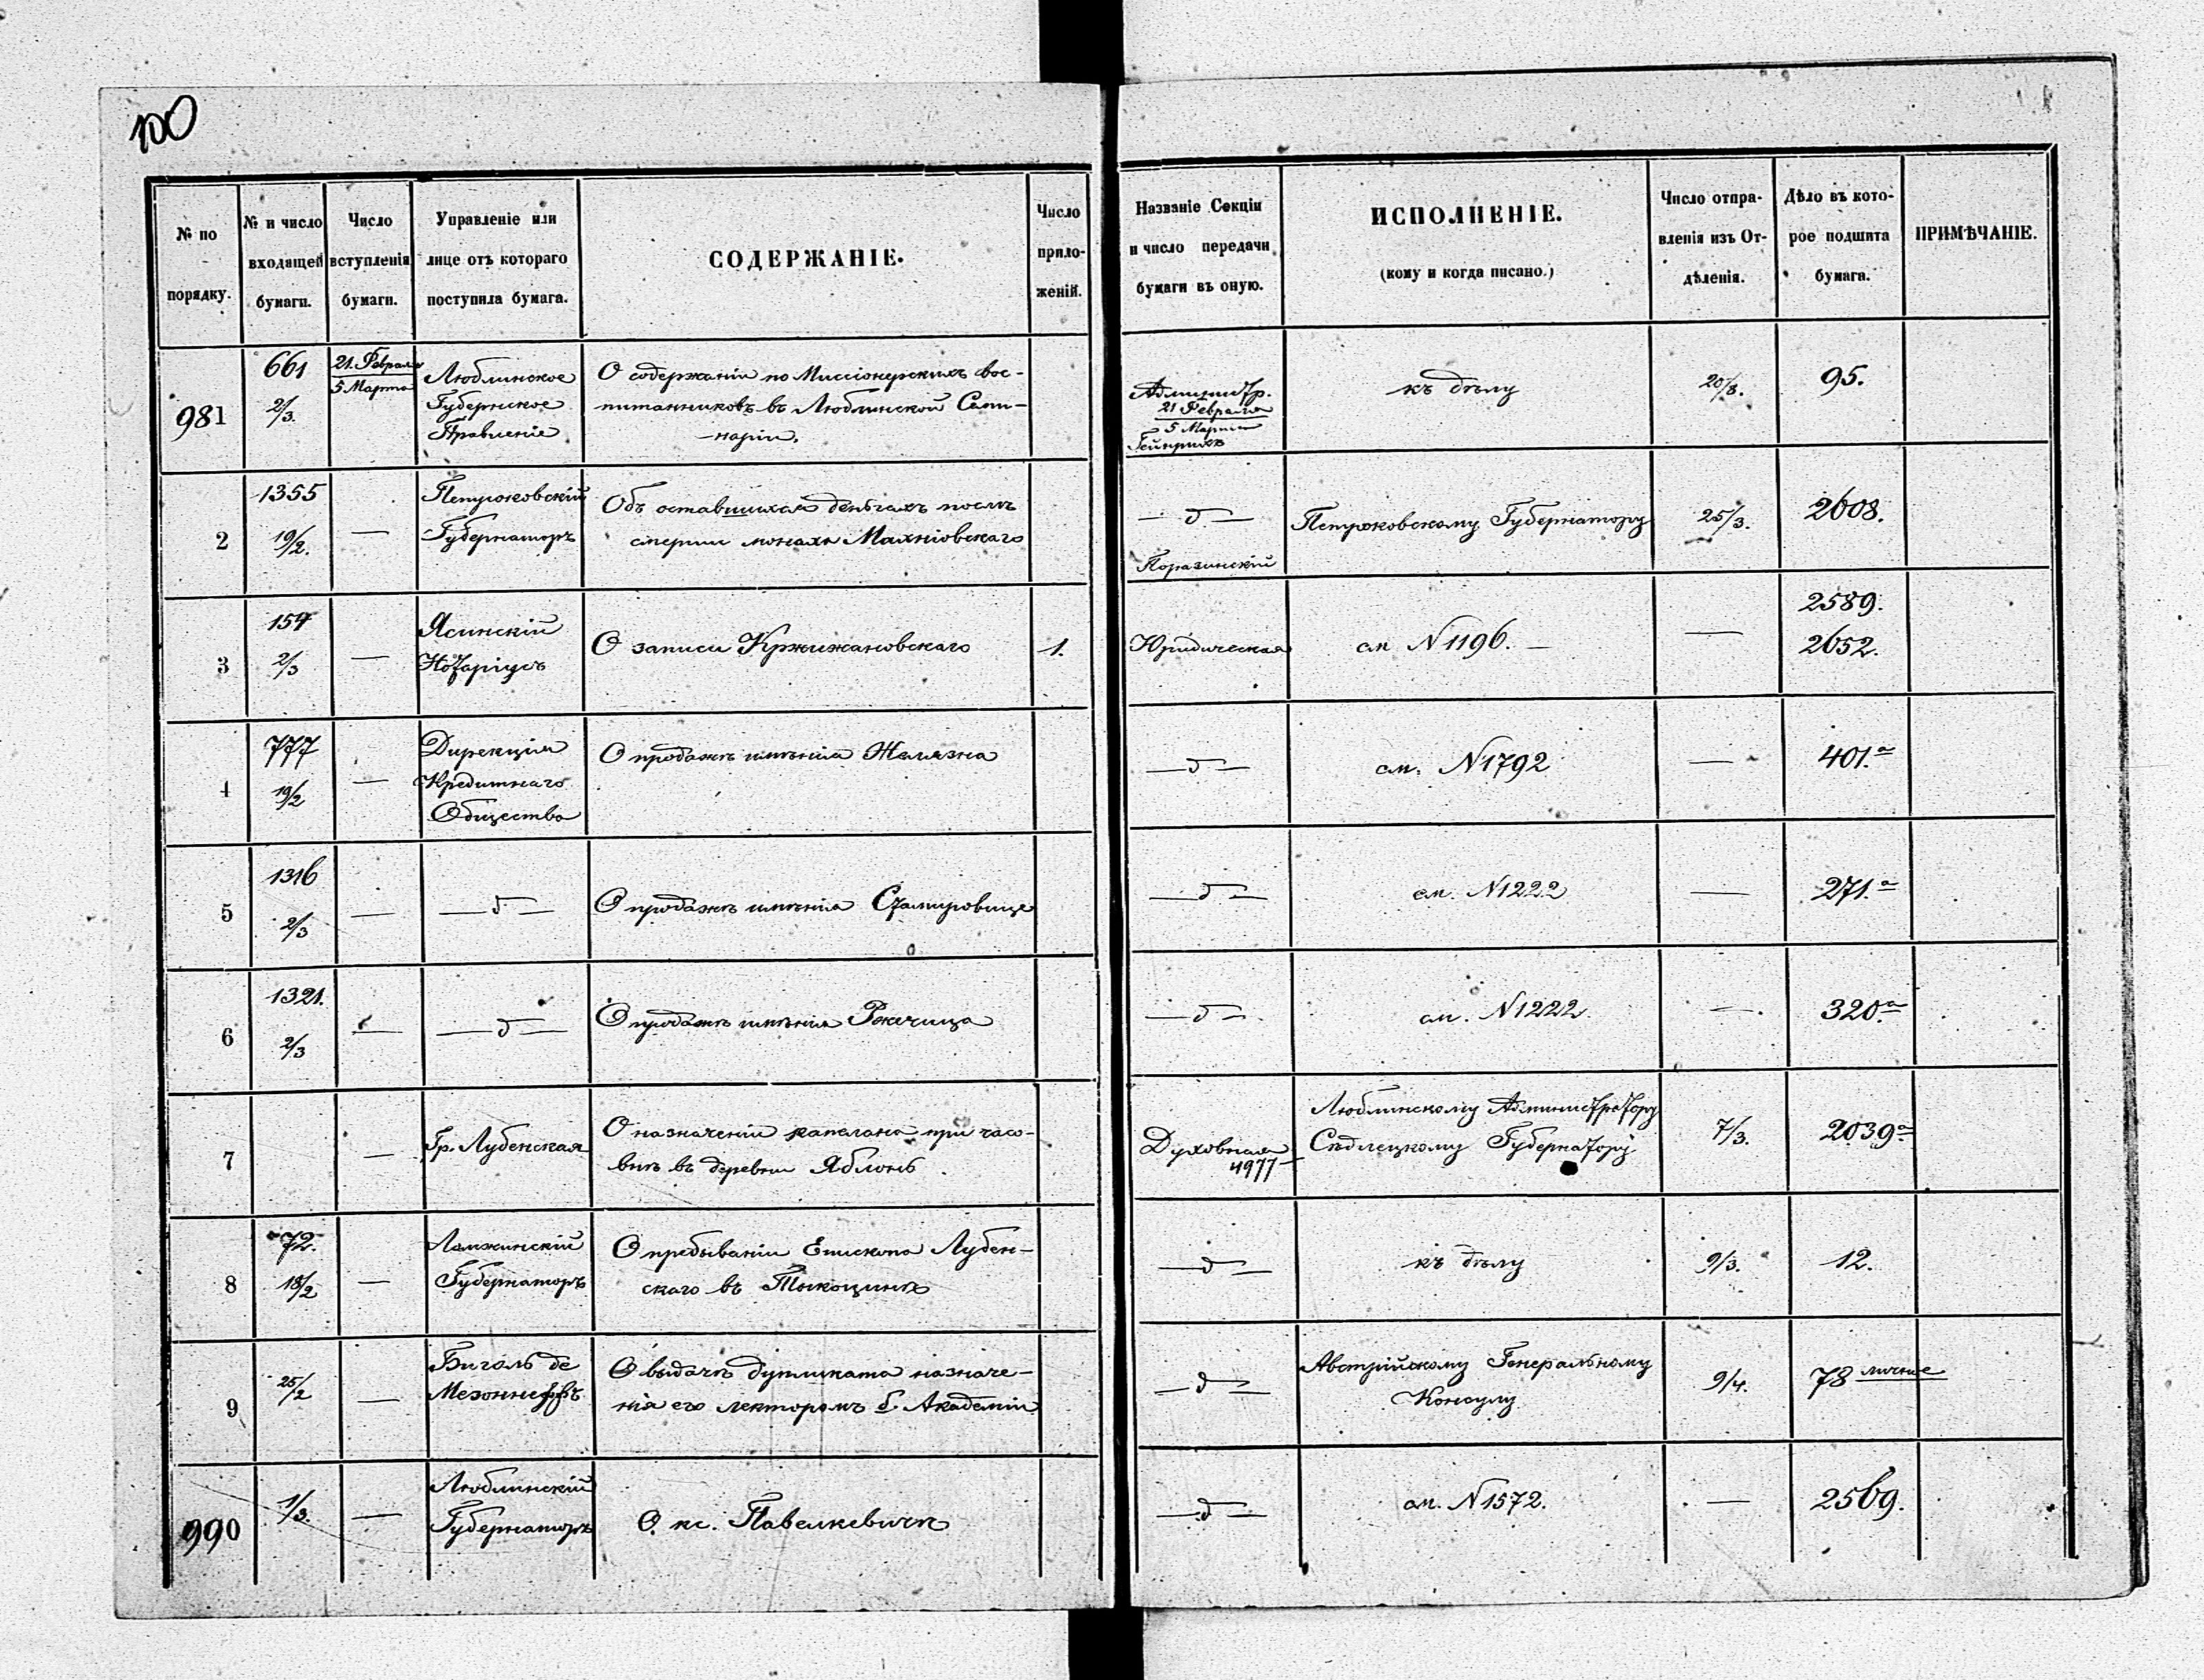 100
№ по порядку.
№ и число входящей бумаги.
Число вступленія бумаги.
Управленіе или лице отъ котораго поступила бумага.
СОДЕРЖАНІЕ.
Число прило-женій.
Названіе Секціи и число передачи бумаги въ оную.
ИСПОЛНЕНІЕ.
(кому и когда писано.)
Число отпра-вленія изъ От-дѣленія.
Дѣло въ кото-рое подшита бумага.
ПРИМѢЧАНІЕ.
981
661
2/3.
21. Февраля
5 Марта
Люблинское
Губернское
Правленіе
О содержаніи по Миссіонерскихъ вос-
питанниковъ въ Люблинской Семи-
наріи.
Администр.
21 Февраля
5 Марта
Гейнрихъ
къ дѣлу
20/8.
95.
2
1355
19/2.
—
Петроковскій
Губернаторъ
Объ оставшихся деньгахъ послѣ
смерти монаха Махніовскаго
— д —
Поразинскій
Петроковскому Губернатору
25/3.
2608.
3
154
2/3
—
Ясинскій
Нотаріусъ
О записи Кржижановскаго
1.
Юридическая
см N 1196. —
—
2589.
2652.
4
777
19/2
—
Дирекція
Кредитнаго
Общества
О продажѣ имѣнія Желязна
— д —
см. N 1792
—
401.а
5
1316
2/3
—
— д —
О продажѣ имѣнія Стамировице
— д —
см. N 1222
—
271.а
6
1321.
2/3
—
— д —
О продажѣ имѣнія Ржечица
— д —
см. N 1222
—
320.а
7
—
Гр. Лубенская
О назначеніи капелана при часо-
внѣ въ деревни Яблонь.
Духовная
4977
Люблинскому Администратору
Сѣдлецкому Губернатору
7/3.
2039а
8
72.
18/2
—
Ломжинскій
Губернаторъ
О пребываніи Епископа Лубен-
скаго въ Тыкоцинѣ
— д —
къ дѣлу
9/3.
12.
9
25/2
—
Биголь де
Мезоннеффъ
О выдачѣ дупликата назначе-
нія его лекторомъ б. Академіи
— д —
Австрійскому Генеральному
Консулу
9/4.
78 личные
990
1/3.
—
Люблинскій
Губернаторъ
О кс. Павелкевичѣ
— д —
см. N 1572.
—
2569.